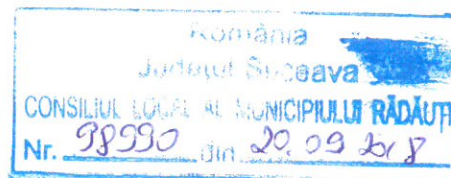 România
Județul Suceava
CONSILIUL LOCAL AL MUNICIPIULUI RĂDĂUȚI
Nr. 98990 din 20.09 2018